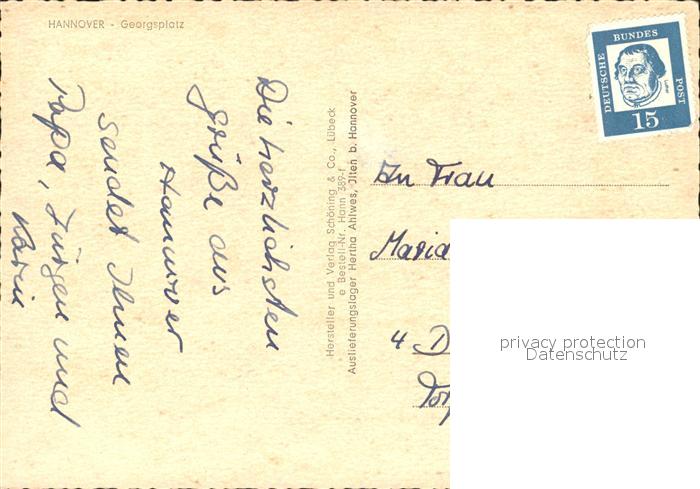 HANNOVER - Georgsplatz
Die herzlichsten
Grüße aus
Hannover
sendet Ihnen
Papa, Jürgen und
Karin
Hersteller und Verlag Schöning & Co., Lübeck
e Bestell-Nr. Hann 389-f
Auslieferungslager Hertha Ahlwes, Ilten b. Hannover
DEUTSCHE
BUNDES
POST
Luther
15
An Frau
Maria
4 D
privacy protection
Datenschutz